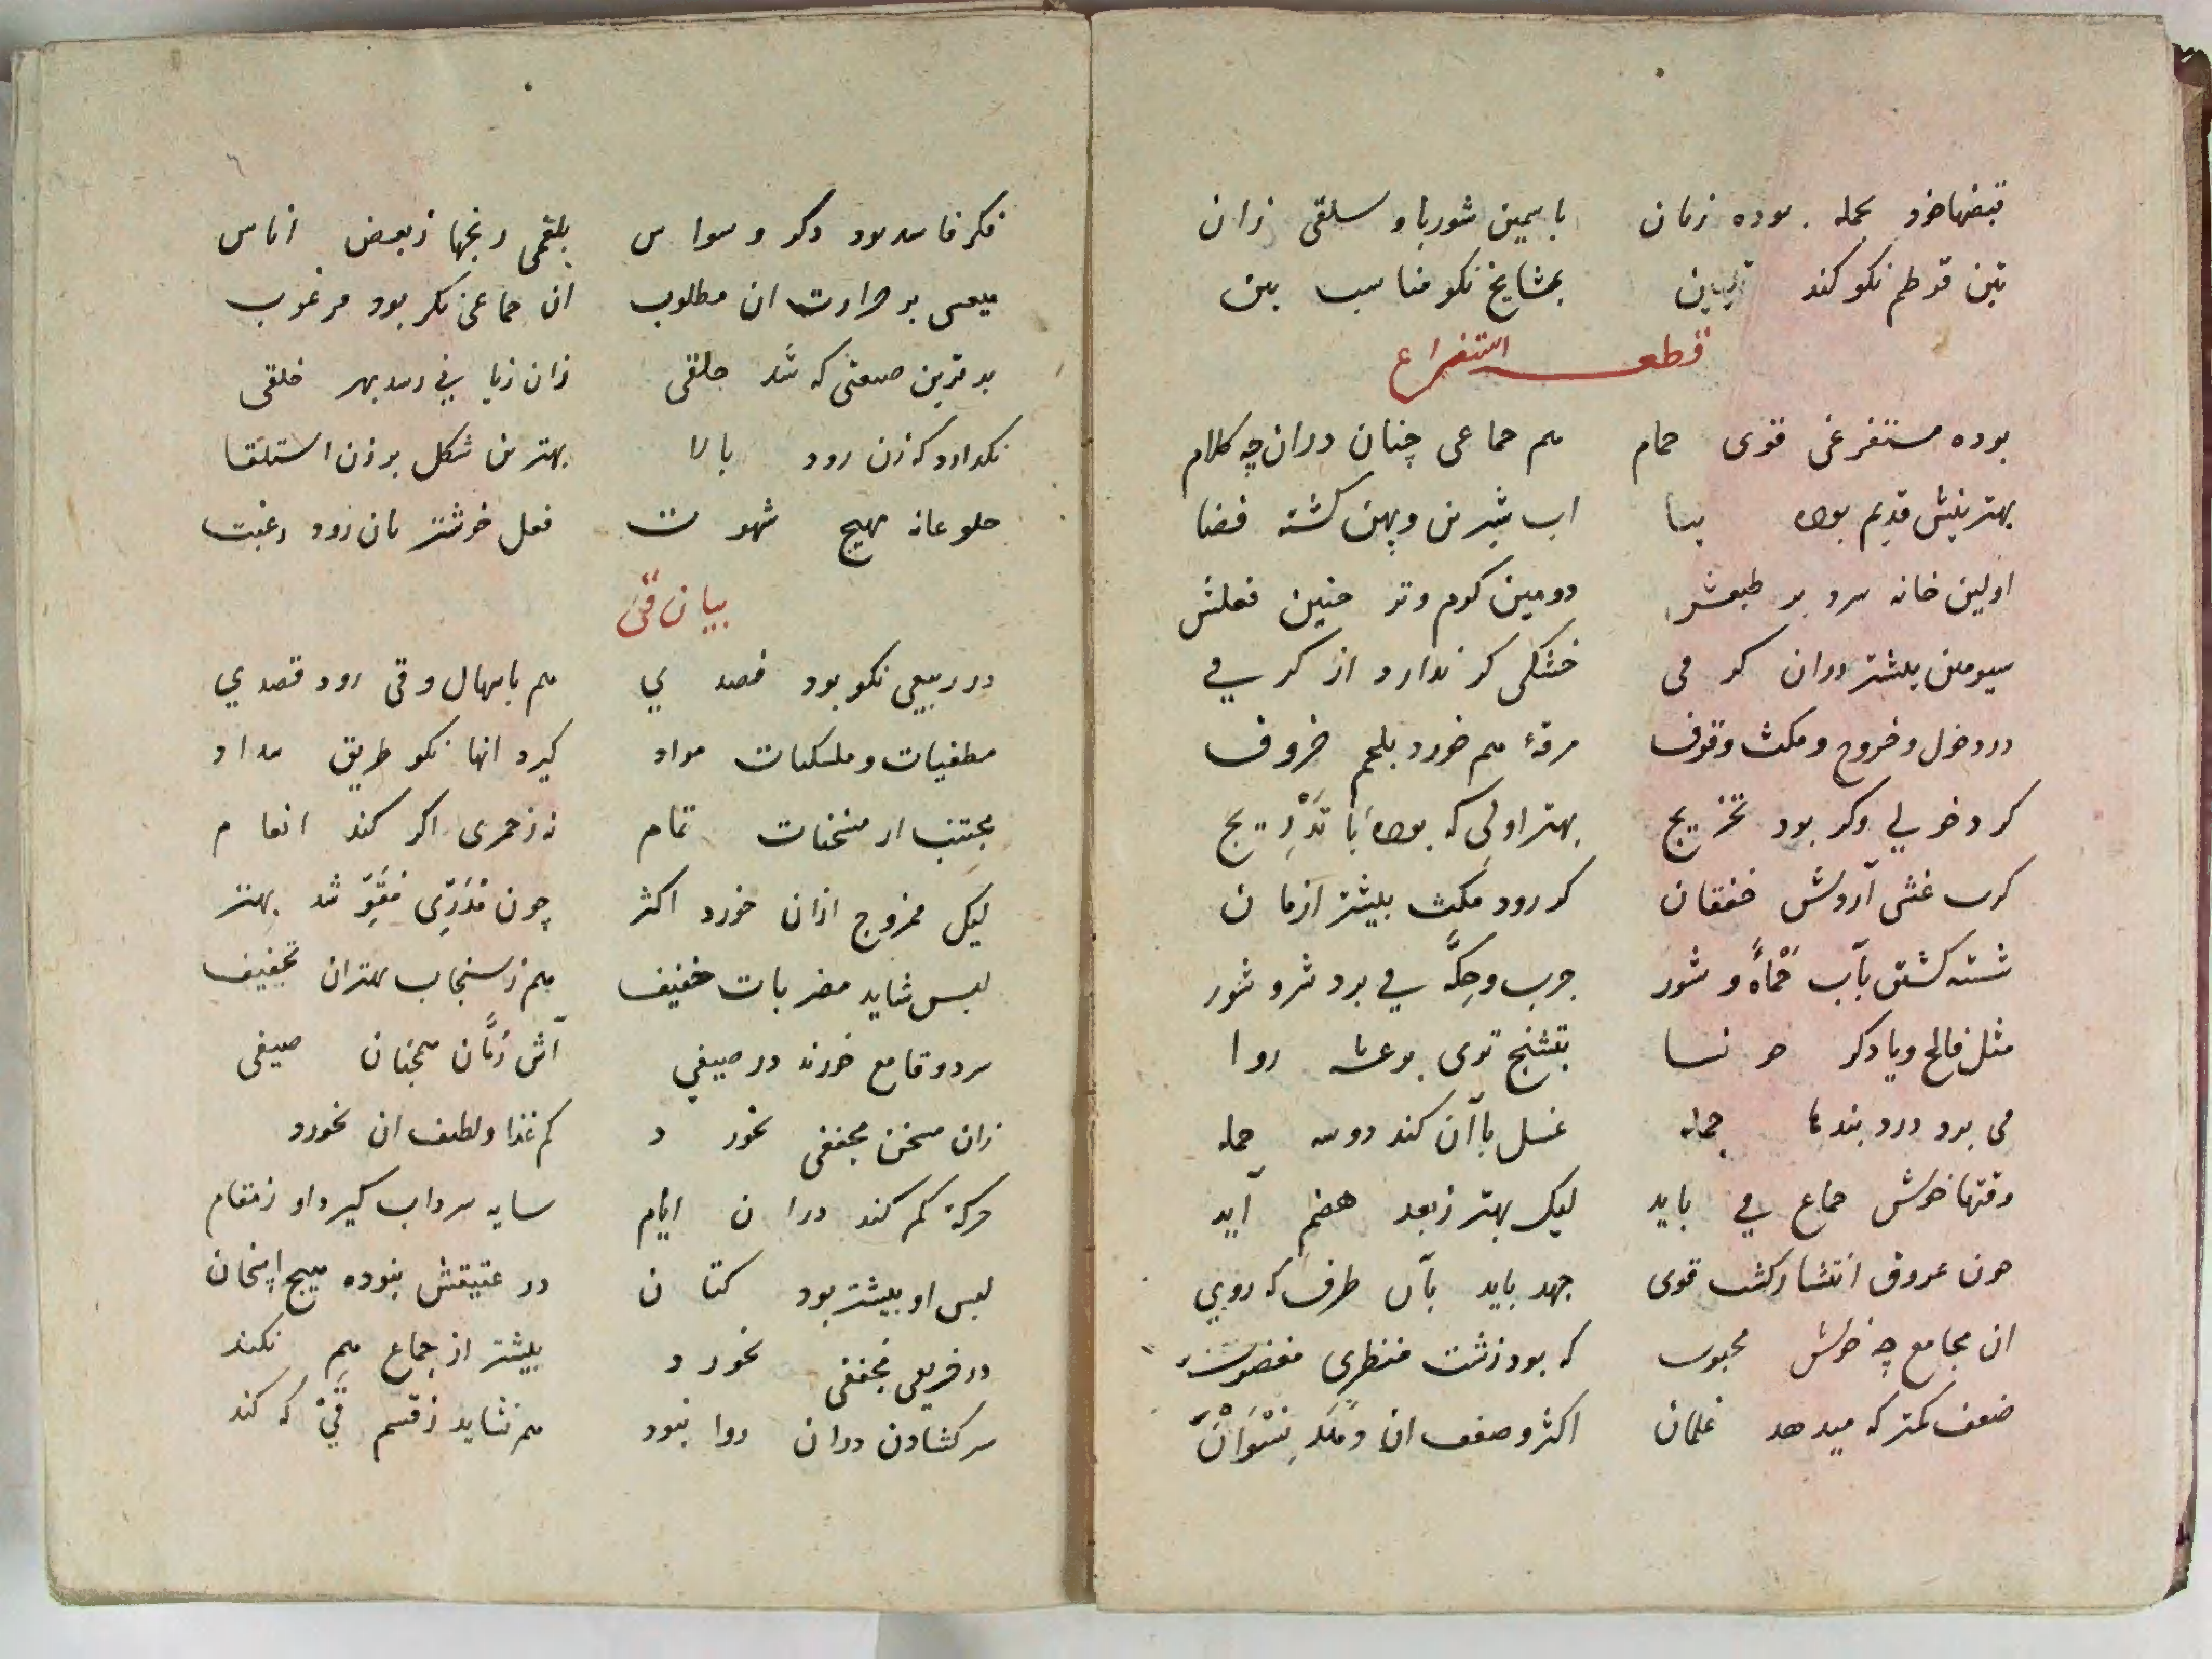 قبضها خود بوده زمان باسمین شوربا و سلقی زان
تین قرطم نکو کند تلیین بمشایخ نکو مناسب بین
قطعه استفراغ
بوده مستفرغی قوی حمام هم جماعی چنان دران چه کلام
بهترینش قدیم بوده بنا اب شیرین و پهن کشته فضا
اولین خانه سرد بر طبعش دومین کرم و تر چنین فعلش
سیومین بیشتر دران کرمی خشکی کر ندارد از کرمی
در دخول و خروج و مکث وقوف مرقهٔ هم خورد بلحم خروف
کر دخولی وکر بود تخریج بهتر اولی که بوده با تَدْرِیج
کرب غشی آردش خفقان کر رود مکث بیشتر ازمان
شسته کشتن بآب حَمْأه و شور جرب و حِکَّه می برد شر و شور
مثل فالج و یا دکر نسا بتشنج قوی برعشه روا
می برد درد بندها جمله غسل باآن کند دوسه جمله
وقتها خوش جماع می باید لیک بهتر زبعد هضم آید
چون عروق انتشار کشت قوی جهد باید بآن طرف که روی
ان مجامع چه خوش محبوب که بود زشت منظری مغضوب
ضعف کمتر که میدهد غلمان اکثر و صعف ان نِسْوَانْ
فکر فاسد بود دکر وسواس بلغمی رنجها زبعض اناس
بر حرارت ان مطلوب ان جماعی نکر بود مرغوب
بدترین صیعتی که شد جلقی زان زیانی رسد بهر خلقی
نکدارد که زن رود بالا بهترین شکل بر زن استلقا
جلوعانه مهیج شهوت فعل خوشتر بان رود رغبت
بیان قی
در ربیعی نکو بود فصدی هم باسهال و قی رود قصدی
مطفیات و مسکنات مواد کیرد انها نکو طریق مداد
مجتنب از مسخنات تمام نه زخمری اکر کند انعام
لیک ممزوج ازان خورد اکثر چون شد بهتر
لبس شاید مضربات خفیف هم زسنجاب بهتران تخفیف
سرد و قامع خورند در صیفی آش رُمَّان همچنان صیفی
زان مسخن مجففی نخورد کم غذا و لطیف ان نخورد
حرکهٔ کم کند دران ایام سایه سرداب کیرد او زمقام
لبس او بیشتر بود کتان در عتیقش نبوده هیچ
در خریفی مجففی نخورد بیشتر از جماع هم نکند
سر کشادن دران روا نبود هم نشاید زقسم قیْ که کند